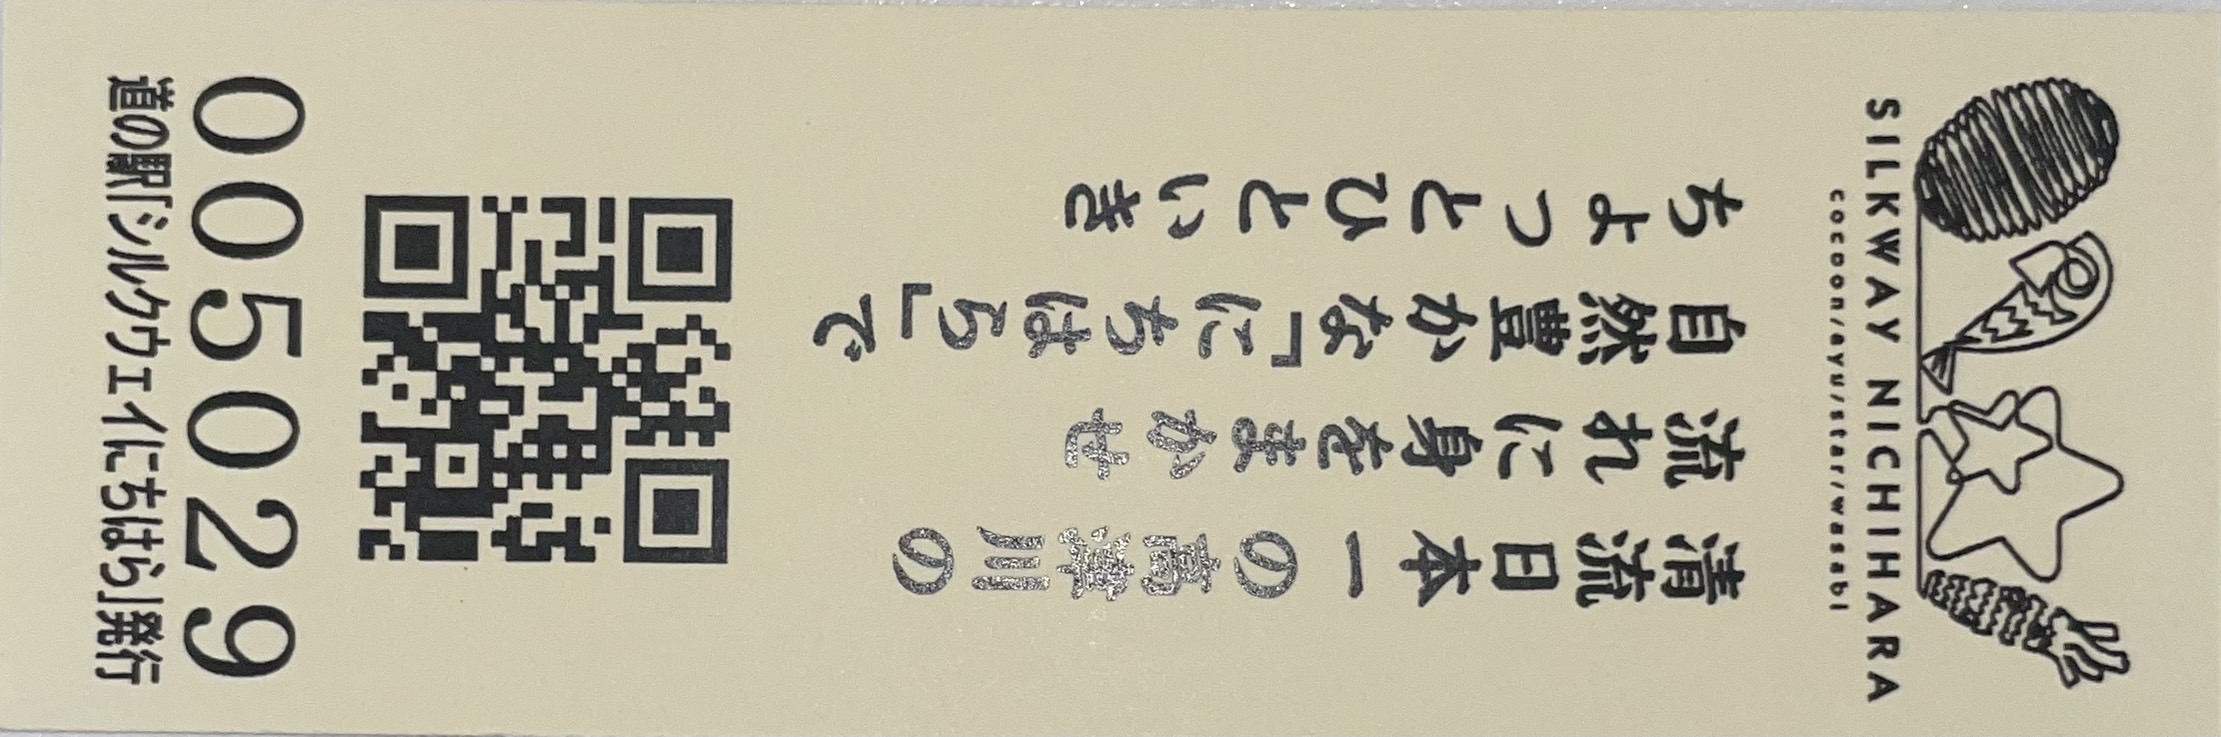 SILKWAY NICHIHARA
cocoon/ayu/star/wasabi
清流日本一の高津川の
流れに身をまかせ
自然豊かな「にちはら」で
ちょっとひといき
005029
道の駅「シルクウェイにちはら」発行